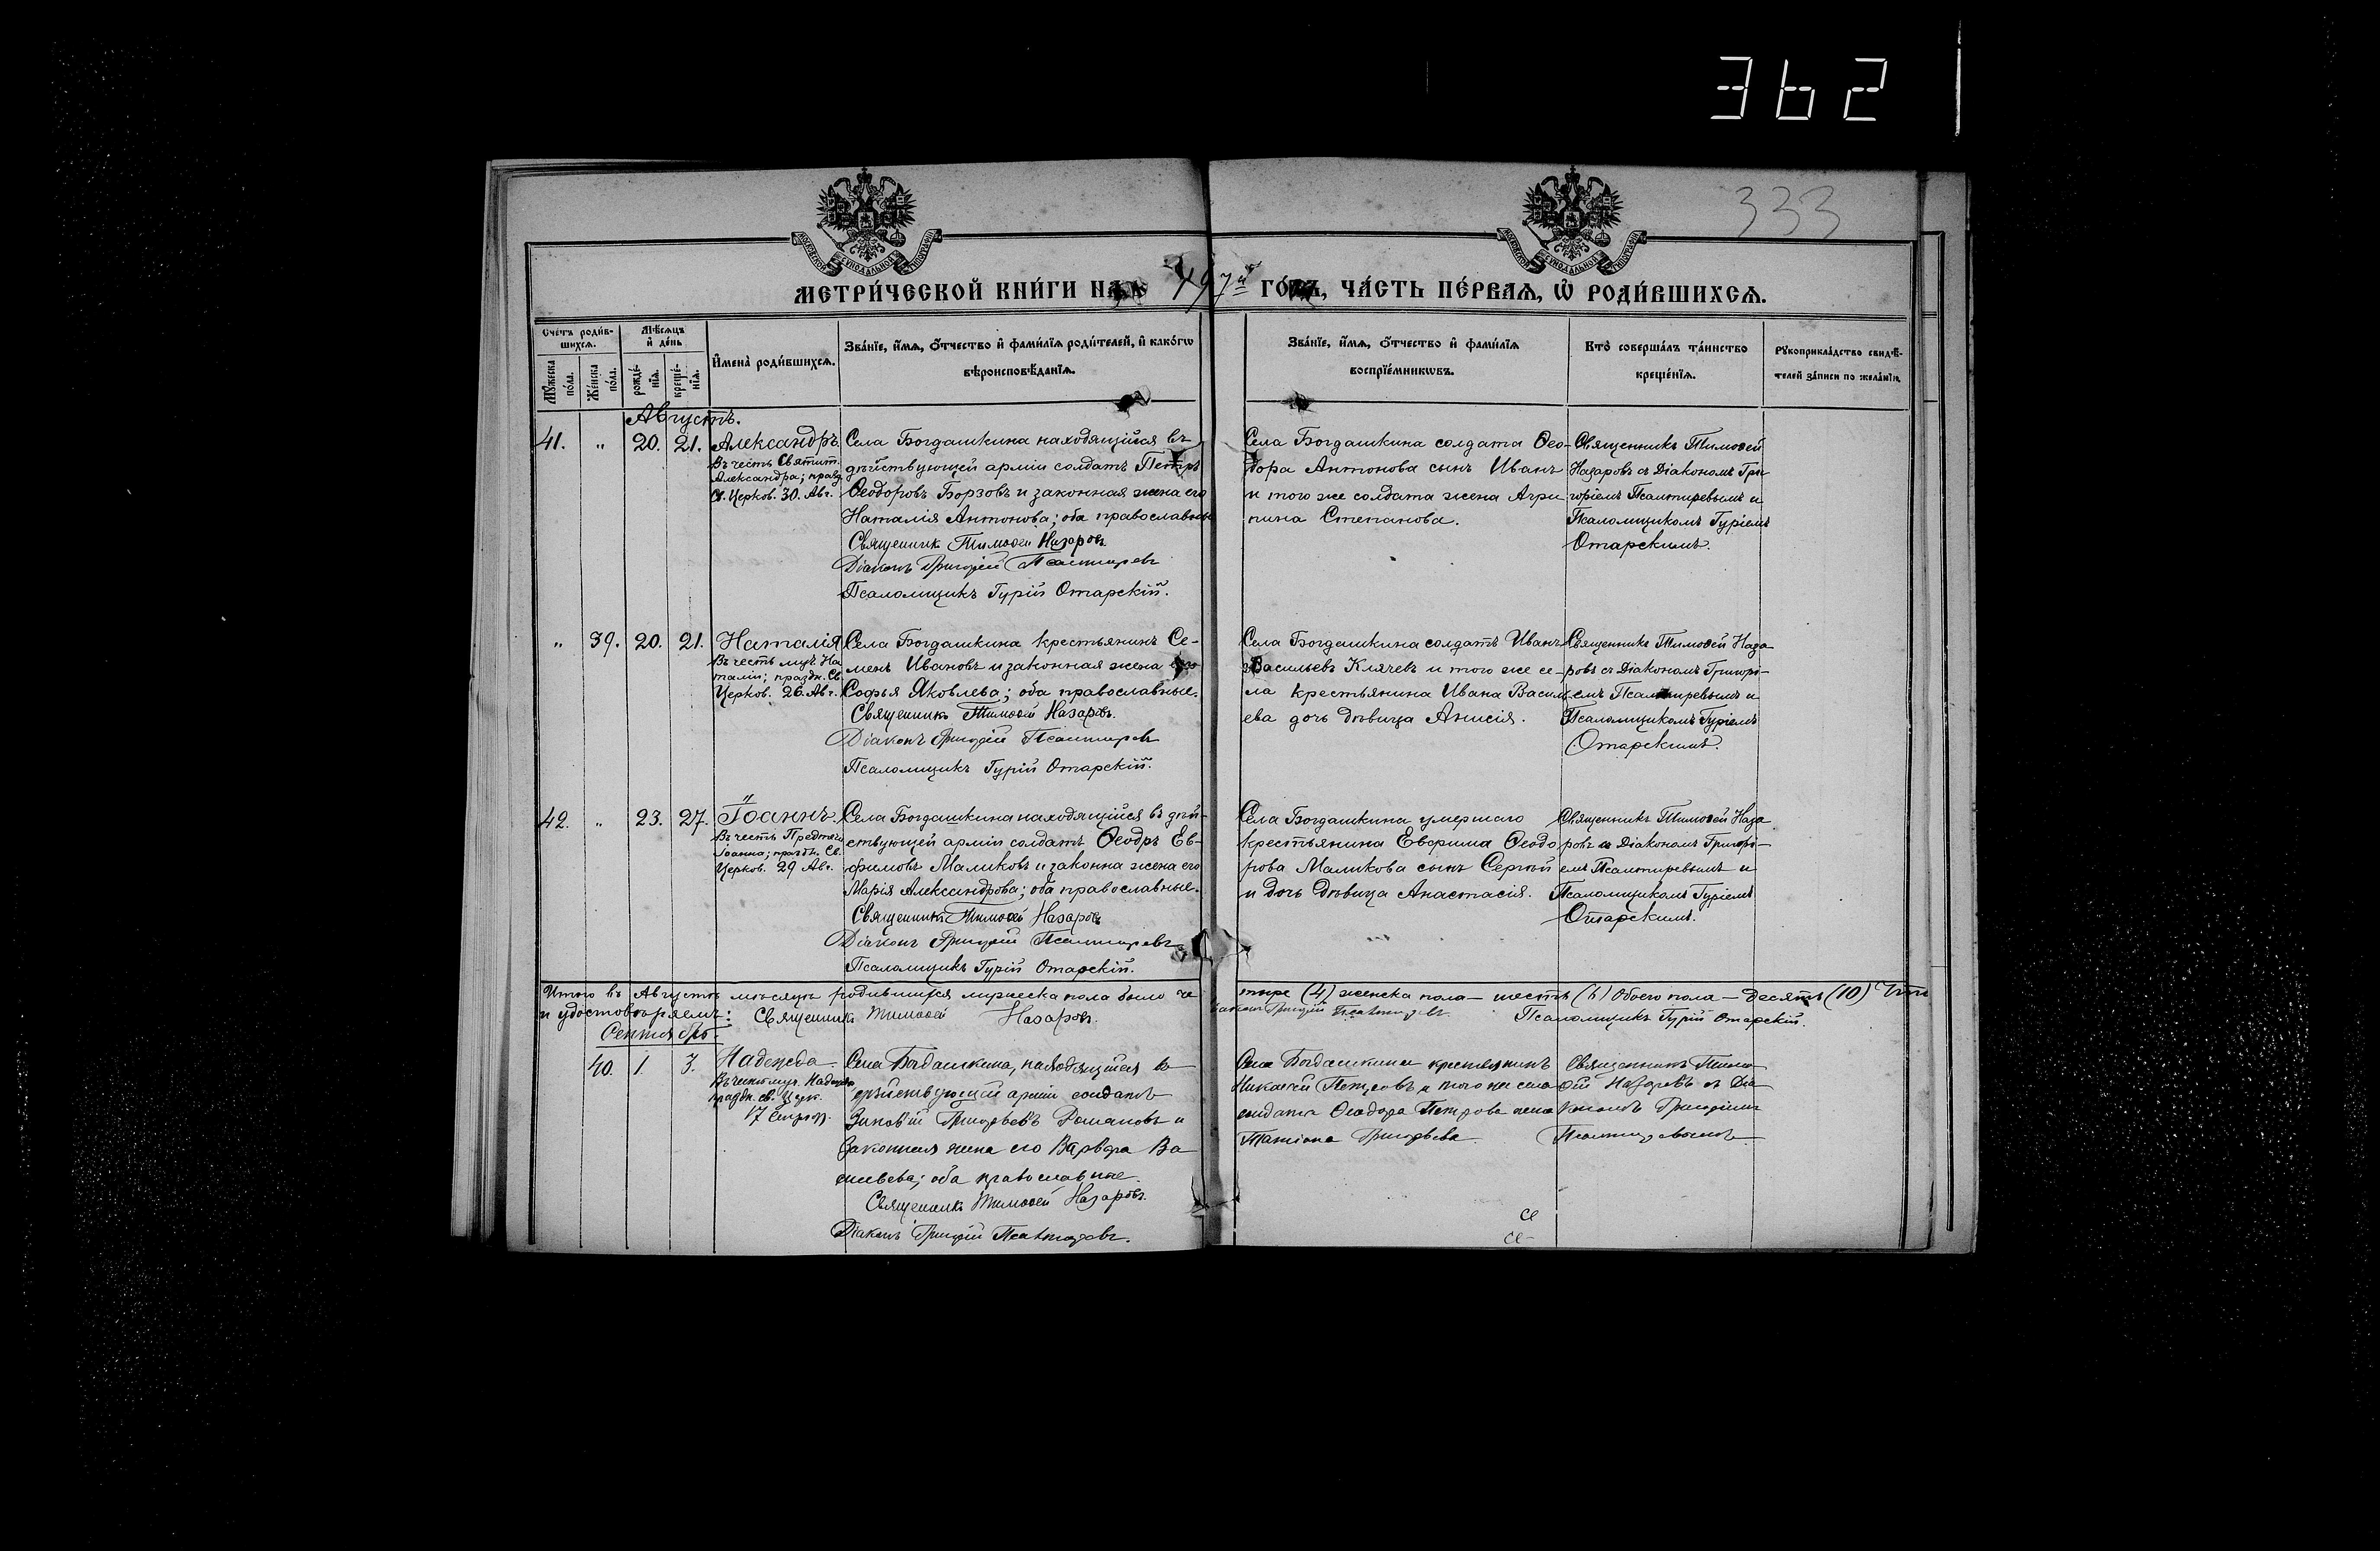 362
333
МОСКОВСКОЙ СУНОДАЛЬНОЙ ТИПОГРАФІИ
МОСКОВСКОЙ СУНОДАЛЬНОЙ ТИПОГРАФІИ
МЕТРИ́ЧЕСКОЙ КНИ́ГИ НА 1917й ГО́ДЪ, ЧА́СТЬ ПЕ́РВАЯ, Ѡ РОДИ́ВШИХСЯ.
Счетъ роди́вшихся.
Мꙋ́жеска по́ла.
Же́нска по́ла.
Мѣ́сяцъ и де́нь
рожде́нїя.
креще́нїя.
И҆мена̀ роди́вшихся.
Зва́нїе, и҆́мя, ѻ҆́тчество и҆ фами́лїя роди́телей, и҆ како́гѡ вѣроисповѣ́данїя.
Зва́нїе, и҆́мя, ѻ҆́тчество и҆ фами́лїя воспрїе́мникѡвъ.
Кто̀ соверша́лъ та́инство креще́нїя.
Рꙋкоприкла́дство свидѣ́телей за́писи по жела́нїю.
Августъ.
41. " 20. 21. Александръ.
Въ честь Святит.
Александра; празд.
Св. Церков. 30. Авг.
Села Богдашкина находящійся въ
дѣйствующей арміи солдатъ Петръ
Ѳеодоровъ Борзовъ и законная жена его
Наталія Антонова; оба православные
Священник Тимоѳей Назаровъ
Діаконъ Григорій Псалтиревъ
Псаломщикъ Гурій Отарскій.
Села Богдашкина солдата Ѳео-
дора Антонова сынъ Иванъ
и того же солдата жена Агри
пина Степанова.
Священникъ Тимоѳей
Назаровъ съ Діакономъ Гри
горіемъ Псалтиревымъ и
Псаломщикомъ Гуріемъ
Отарскимъ.
" 39. 20. 21. Наталія
Въ честь муч. На
таліи; праздн. Св.
Церков. 26. Авг.
Села Богдашкина крестьянинъ Се-
менъ Ивановъ и законная жена его
Софья Яковлева; оба православные.
Священникъ Тимоѳей Назаровъ.
Діаконъ Григорій Псалтиревъ
Псаломщикъ Гурій Отарскій.
Села Богдашкина солдатъ Иванъ
Васильевъ Клячевъ и того же се-
ла крестьянина Ивана Василь
ева дочь дѣвица Анисія.
Священникъ Тимоѳей Наза
ровъ съ Діакономъ Григорі-
емъ Псалтиревымъ и
Псаломщикомъ Гуріемъ
Отарскимъ.
42. " 23. 27. Іоаннъ.
Въ честь Предтечи
Іоанна; праздн. Св.
Церков. 29 Авг.
Села Богдашкина находящійся въ дѣй-
ствующей арміи солдатъ Ѳеодръ Ев-
фимовъ Маликовъ и законна жена его
Марія Александрова; оба православные.
Священникъ Тимоѳей Назаровъ
Діаконъ Григорій Псалтиревъ
Псаломщикъ Гурій Отарскій.
Села Богдашкина умершаго
крестьянина Евфима Ѳеодо
рова Маликова сынъ Сергѣй
и дочь дѣвица Анастасія.
Священникъ Тимоѳей Наза
ровъ съ Діакономъ Григорі-
емъ Псалтиревымъ и
Псаломщикомъ Гуріемъ
Отарскимъ.
Итого въ Августѣ мѣсяцѣ родившихся мужеска пола было че
тыре (4) женска пола – шесть (6) Обоего пола – десять (10) Что
и удостовѣряемъ: Священникъ Тимоѳей Назаровъ.
Діаконъ Григорій Псалтиревъ Псаломщикъ Гурій Отарскій.
Сентябрь
40. 1. 3. Надежда
Въ честь муч. Надежды
праздн. св. Церк.
17 Сентяб.
Села Богдашкина, находящійся въ
дѣйствующей арміи солдатъ
Зиновій Григорьевъ Романовъ и
законная жена его Варвара Ва
сильева; оба православные.
Священникъ Тимоѳей Назаровъ.
Діаконъ Григорій Псалтиревъ.
Села Богдашкина крестьянинъ
Николай Петровъ и того же села
солдата Ѳеодора Петрова жена
Татіана Григорьева.
Священникъ Тимо
ѳей Назаровъ съ Діа
кономъ Григоріемъ
Псалтиревымъ.
се
се-